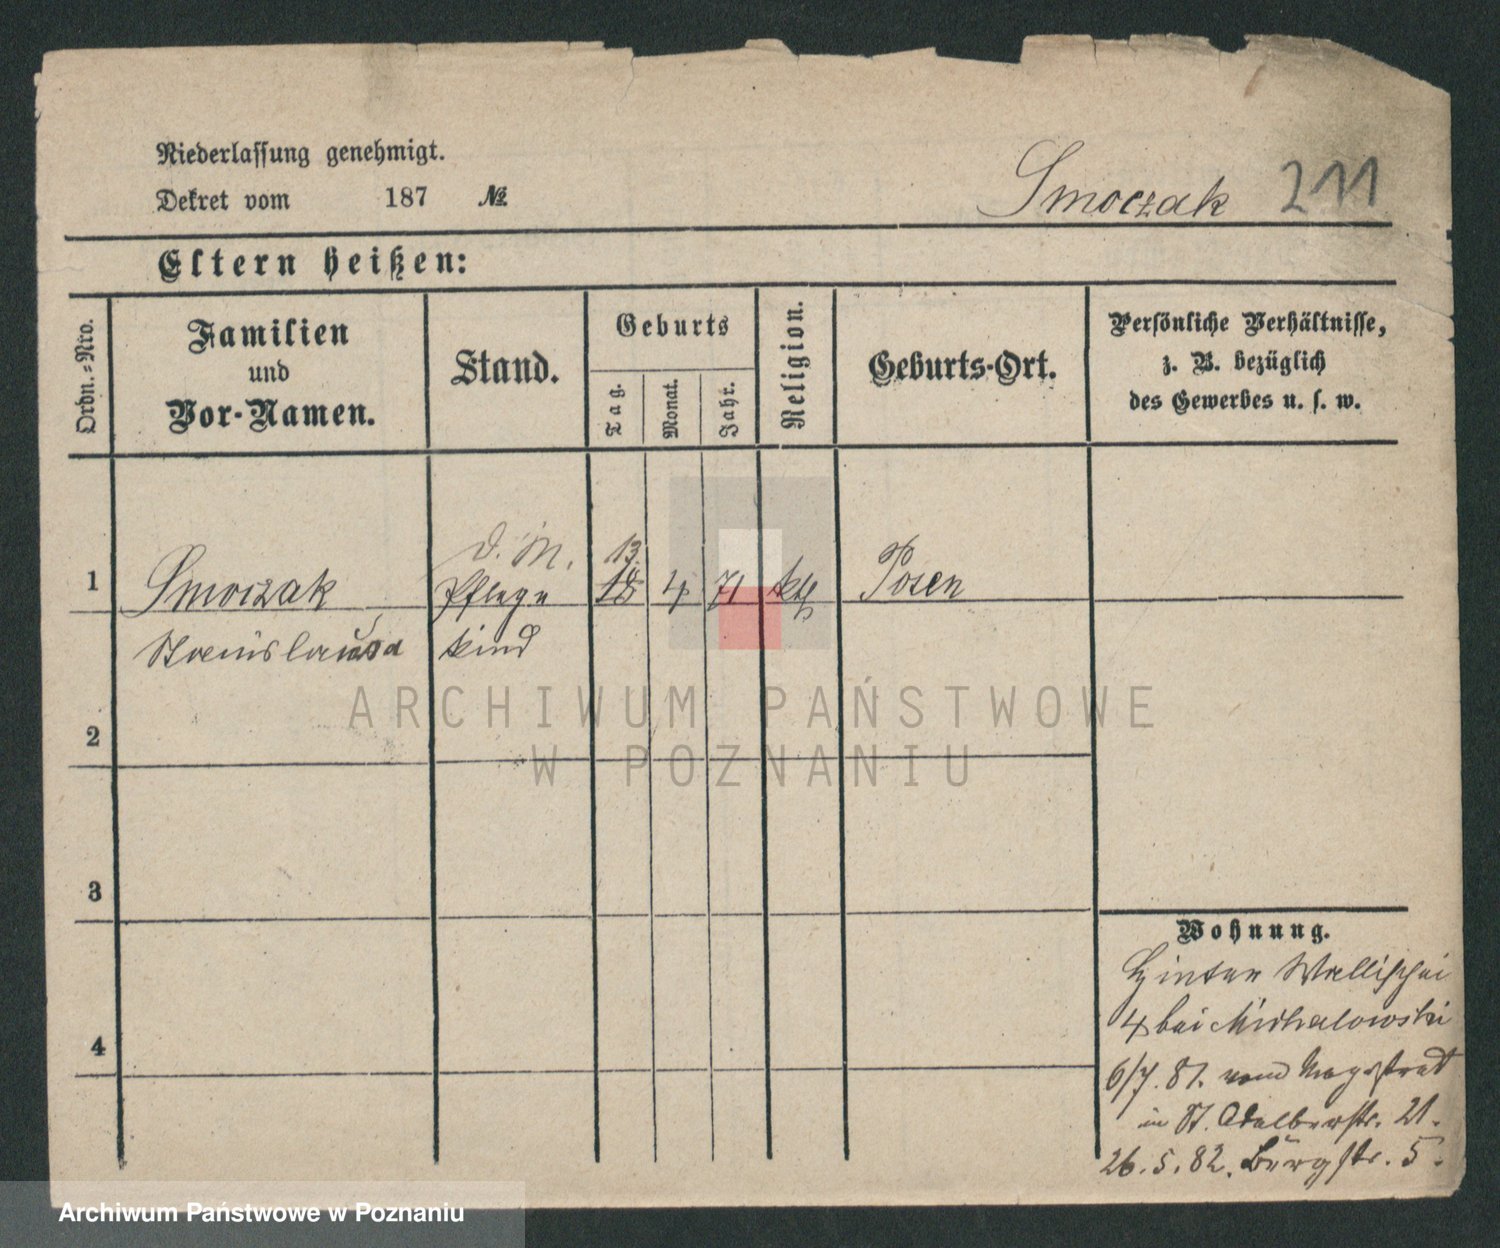 Niederlassung genehmigt.
Dekret vom 187 №
Smoczak 211
Eltern heißen:
Ordn.=Nro.
Familien
und
Vor-Namen.
Stand.
Geburts
Tag.
Monat.
Jahr.
Religion.
Geburts-Ort.
Persönliche Verhältnisse,
z. B. bezüglich
des Gewerbes u. s. w.
d. M. 13.
1 Smoczak Pflege 18 4 71 kth Posen
Stanislausa kind
2
3
4
Wohnung.
Hinter Wallischei
4 bei Michalowski
6/7. 81. vom Magistrat
in St. Adalbertstr. 21.
26.5.82. Burgstr. 5.
ARCHIWUM PAŃSTWOWE
W POZNANIU
Archiwum Państwowe w Poznaniu